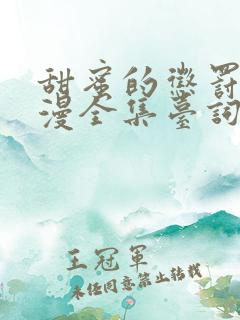 甜蜜的懲罰
漫全集臺詞
王冠軍
未經同意禁止轉載